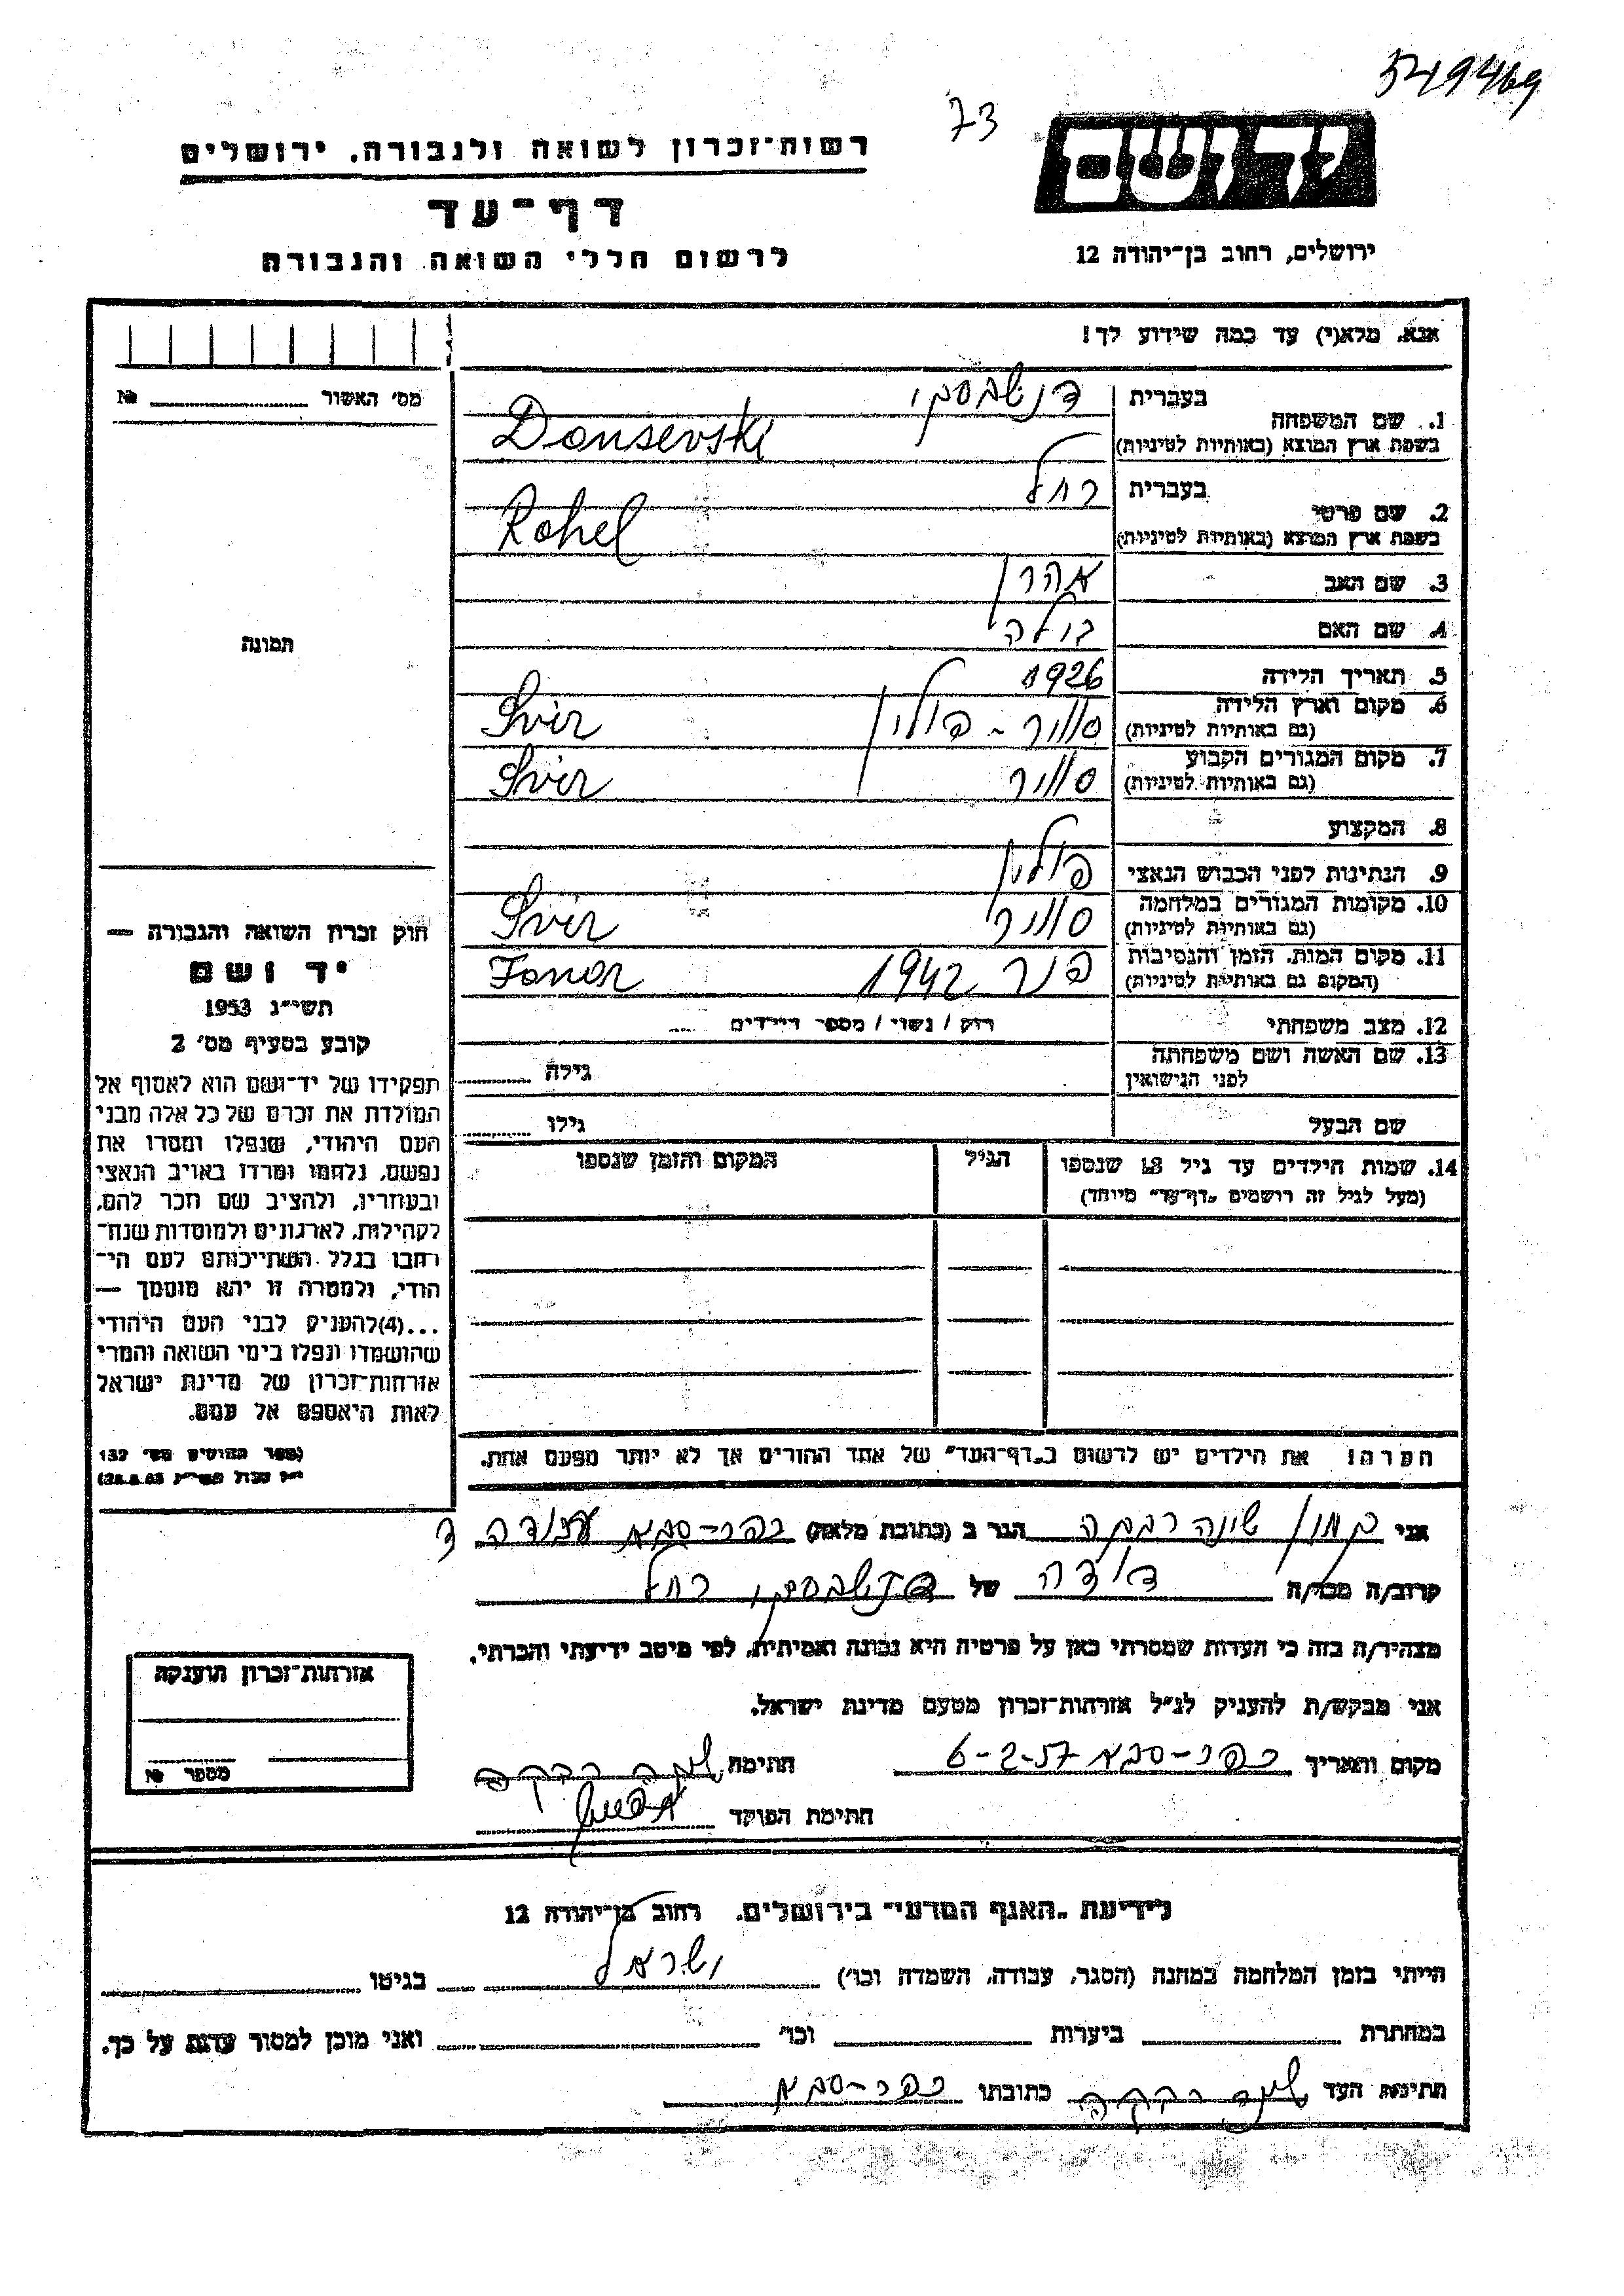 549469
73
יד ושם
רשות־זכרון לשואה ולגבורה, ירושלים
דף־עד
לרשום חללי השואה והגבורה
ירושלים, רחוב בן־יהודה 12
אנא, מלא(י) עד כמה שידוע לך!
מס' האשור №
1. שם המשפחה
בעברית דנשבסקי
בשפת ארץ המוצא (באותיות לטיניות) Donsevski
2. שם פרטי
בעברית רחל
בשפת ארץ המוצא (באותיות לטיניות) Rohel
3. שם האב אהרן
4. שם האם
תמונה
5. תאריך הלידה 1926
6. מקום וארץ הלידה סוויר - פולין Svir
(גם באותיות לטיניות)
7. מקום המגורים הקבוע סוויר Svir
(גם באותיות לטיניות)
8. המקצוע
9. הנתינות לפני הכבוש הנאצי פולין
10. מקומות המגורים במלחמה סוויר Svir
(גם באותיות לטיניות)
11. מקום המות, הזמן והנסיבות פונר 1942 Fonar
(המקום גם באותיות לטיניות)
12. מצב משפחתי רווק / נשוי / מספר הילדים
13. שם האשה ושם משפחתה
לפני הנישואין
גילה
שם הבעל גילו
14. שמות הילדים עד גיל 18 שנספו הגיל המקום והזמן שנספו
(מעל לגיל זה רושמים „דף־עד" מיוחד)
הערה! את הילדים יש לרשום ב„דף־העד" של אחד ההורים אך לא יותר מפעם אחת.
חוק זכרון השואה והגבורה —
יד ושם
תשי״ג 1953
קובע בסעיף מס' 2
תפקידו של יד־ושם הוא לאסוף אל
המולדת את זכרם של כל אלה מבני
העם היהודי, שנפלו ומסרו את
נפשם, נלחמו ומרדו באויב הנאצי
ובעוזריו, ולהציב שם וזכר להם,
לקהילות, לארגונים ולמוסדות שנח־
רבו בגלל השתייכותם לעם הי־
הודי, ולמטרה זו יהא מוסמך —
...(4)להעניק לבני העם היהודי
שהושמדו ונפלו בימי השואה והמרי
אזרחות־זכרון של מדינת ישראל
לאות היאספם אל עמם.
(ספר החוקים מס' 132
אני שיינה רבקה הגר ב (כתובת מלאה) כפר-סבא
קרוב/ה מכר/ה דודה של דנשבסקי רחל
מצהיר/ה בזה כי העדות שמסרתי כאן על פרטיה היא נכונה ואמיתית, לפי מיטב ידיעתי והכרתי.
אני מבקש/ת להעניק לנ״ל אזרחות־זכרון מטעם מדינת ישראל.
מקום ותאריך כפר-סבא 6-2-57 חתימה
חתימת הפוקד
אזרחות־זכרון הוענקה
מספר №
לידיעת „האגף המדעי" בירושלים, רחוב בן־יהודה 12
הייתי בזמן המלחמה במחנה (הסגר, עבודה, השמדה וכו') ישראל בגיטו
במחתרת ביערות וכו' ואני מוכן למסור עדות על כך.
חתימת העד כתובתו כפר-סבא